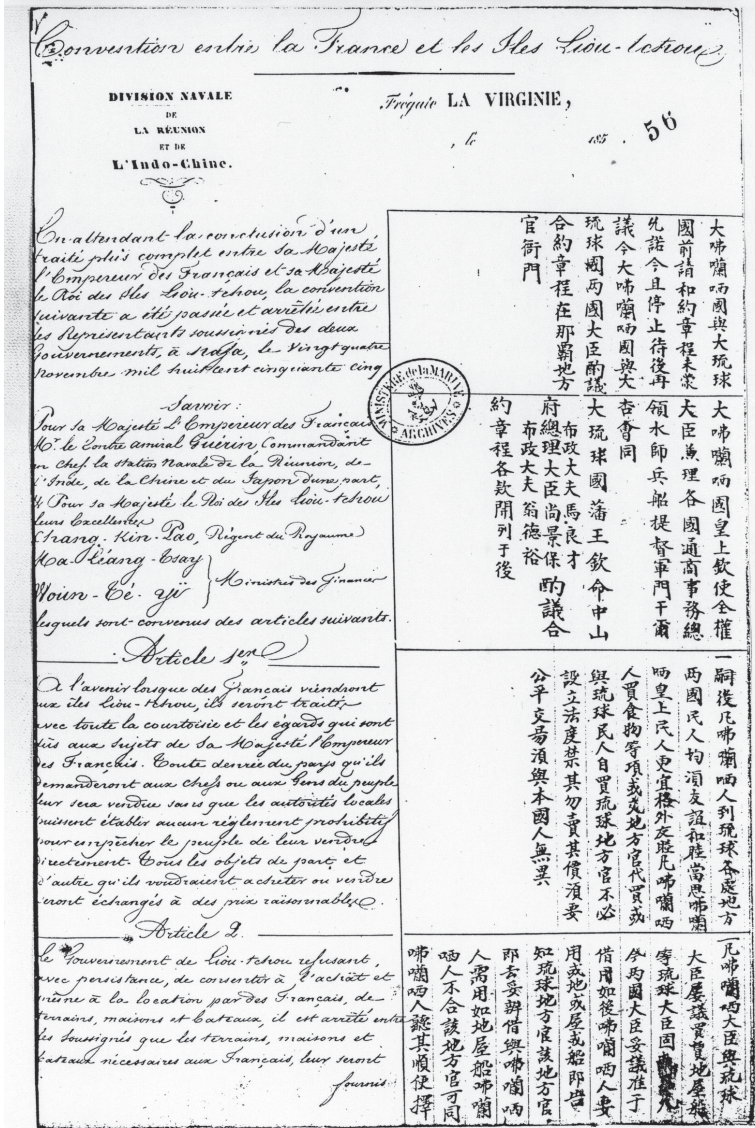 Convention entre la France et les Iles Liou-tchou
DIVISION NAVALE
DE
LA RÉUNION
ET DE
L'Indo-Chine.
Frégate LA VIRGINIE,
, le 185 .
56
En attendant la conclusion d'un
traité plus complet entre sa Majesté
l'Empereur des Français et sa Majesté
le Roi des Iles Liou-tchou, la convention
suivante a été passée et arrêtée entre
les Représentants soussignés des deux
Gouvernements, à Nafa, le vingt quatre
novembre mil huit cent cinquante cinq
Savoir:
Pour sa Majesté l'Empereur des Français
Mr. le Contre amiral Guérin Commandant
en Chef la station Navale de la Réunion, de
l'Inde, de la Chine et du Japon d'une part,
& Pour sa Majesté le Roi des Iles Liou-tchou
leurs Excellences
Chang-Kin-Pao, Régent du Royaume
Ma-Liang-Tsay
Woun-Té-Yü
Ministres des finances
lesquels sont convenus des articles suivants.
Article 1er
A l'avenir lorsque des Français viendront
aux îles Liou-tchou, ils seront traités
avec toute la courtoisie et les égards qui sont
dûs aux sujets de Sa Majesté l'Empereur
des Français. Toute denrée du pays qu'ils
demanderont aux chefs ou aux Gens du peuple
leur sera vendue sans que les autorités locales
puissent établir aucun règlement prohibitif
pour empêcher le peuple de leur vendre
directement. Tous les objets de part et
d'autre qu'ils voudraient acheter ou vendre
seront échangés à des prix raisonnables.
Article 2.
Le Gouvernement de Liou-tchou refusant,
avec persistance, de consentir à l'achat et
même à la location par des Français, de
terrains, maisons et bateaux, il est arrêté entre
les soussignés que les terrains, maisons et
bateaux nécessaires aux Français, leur seront
fournis
大咈囒哂國與大琉球
國前請和約章程未蒙
允諾今且停止待後再
議今大咈囒哂國與大
琉球國兩國大臣酌議
合約章程在那霸地方
官衙門
MINISTÈRE de la MARINE
ARCHIVES
大咈囒哂國皇上欽使全權
大臣兼理各國通商事務總
領水師兵船提督軍門干爾
杏會同
大琉球國藩王欽命中山
府總理大臣尚景保
布政大夫馬良才
布政大夫翁德裕
酌議合
約章程各款開列于後
一嗣後凡咈囒哂人到琉球各處地方
兩國民人均須友誼和睦當思咈囒
哂皇上民人更宜格外友愛凡咈囒哂
人買食物等項或叫地方官代買或
與琉球民人自買琉球地方官不必
設立法度禁其勿賣其價須要
公平交易須與本國人無異
一凡咈囒哂大臣與琉球
大臣屢議買賣地屋船
等琉球大臣固
今兩國大臣妥議准于
借用如後咈囒哂人要
用或地或屋或船即告
知琉球地方官該地方官
即去妥辦借與咈囒哂
人需用如地屋船咈囒
哂人不合該地方官可同
咈囒哂人聽其順便擇